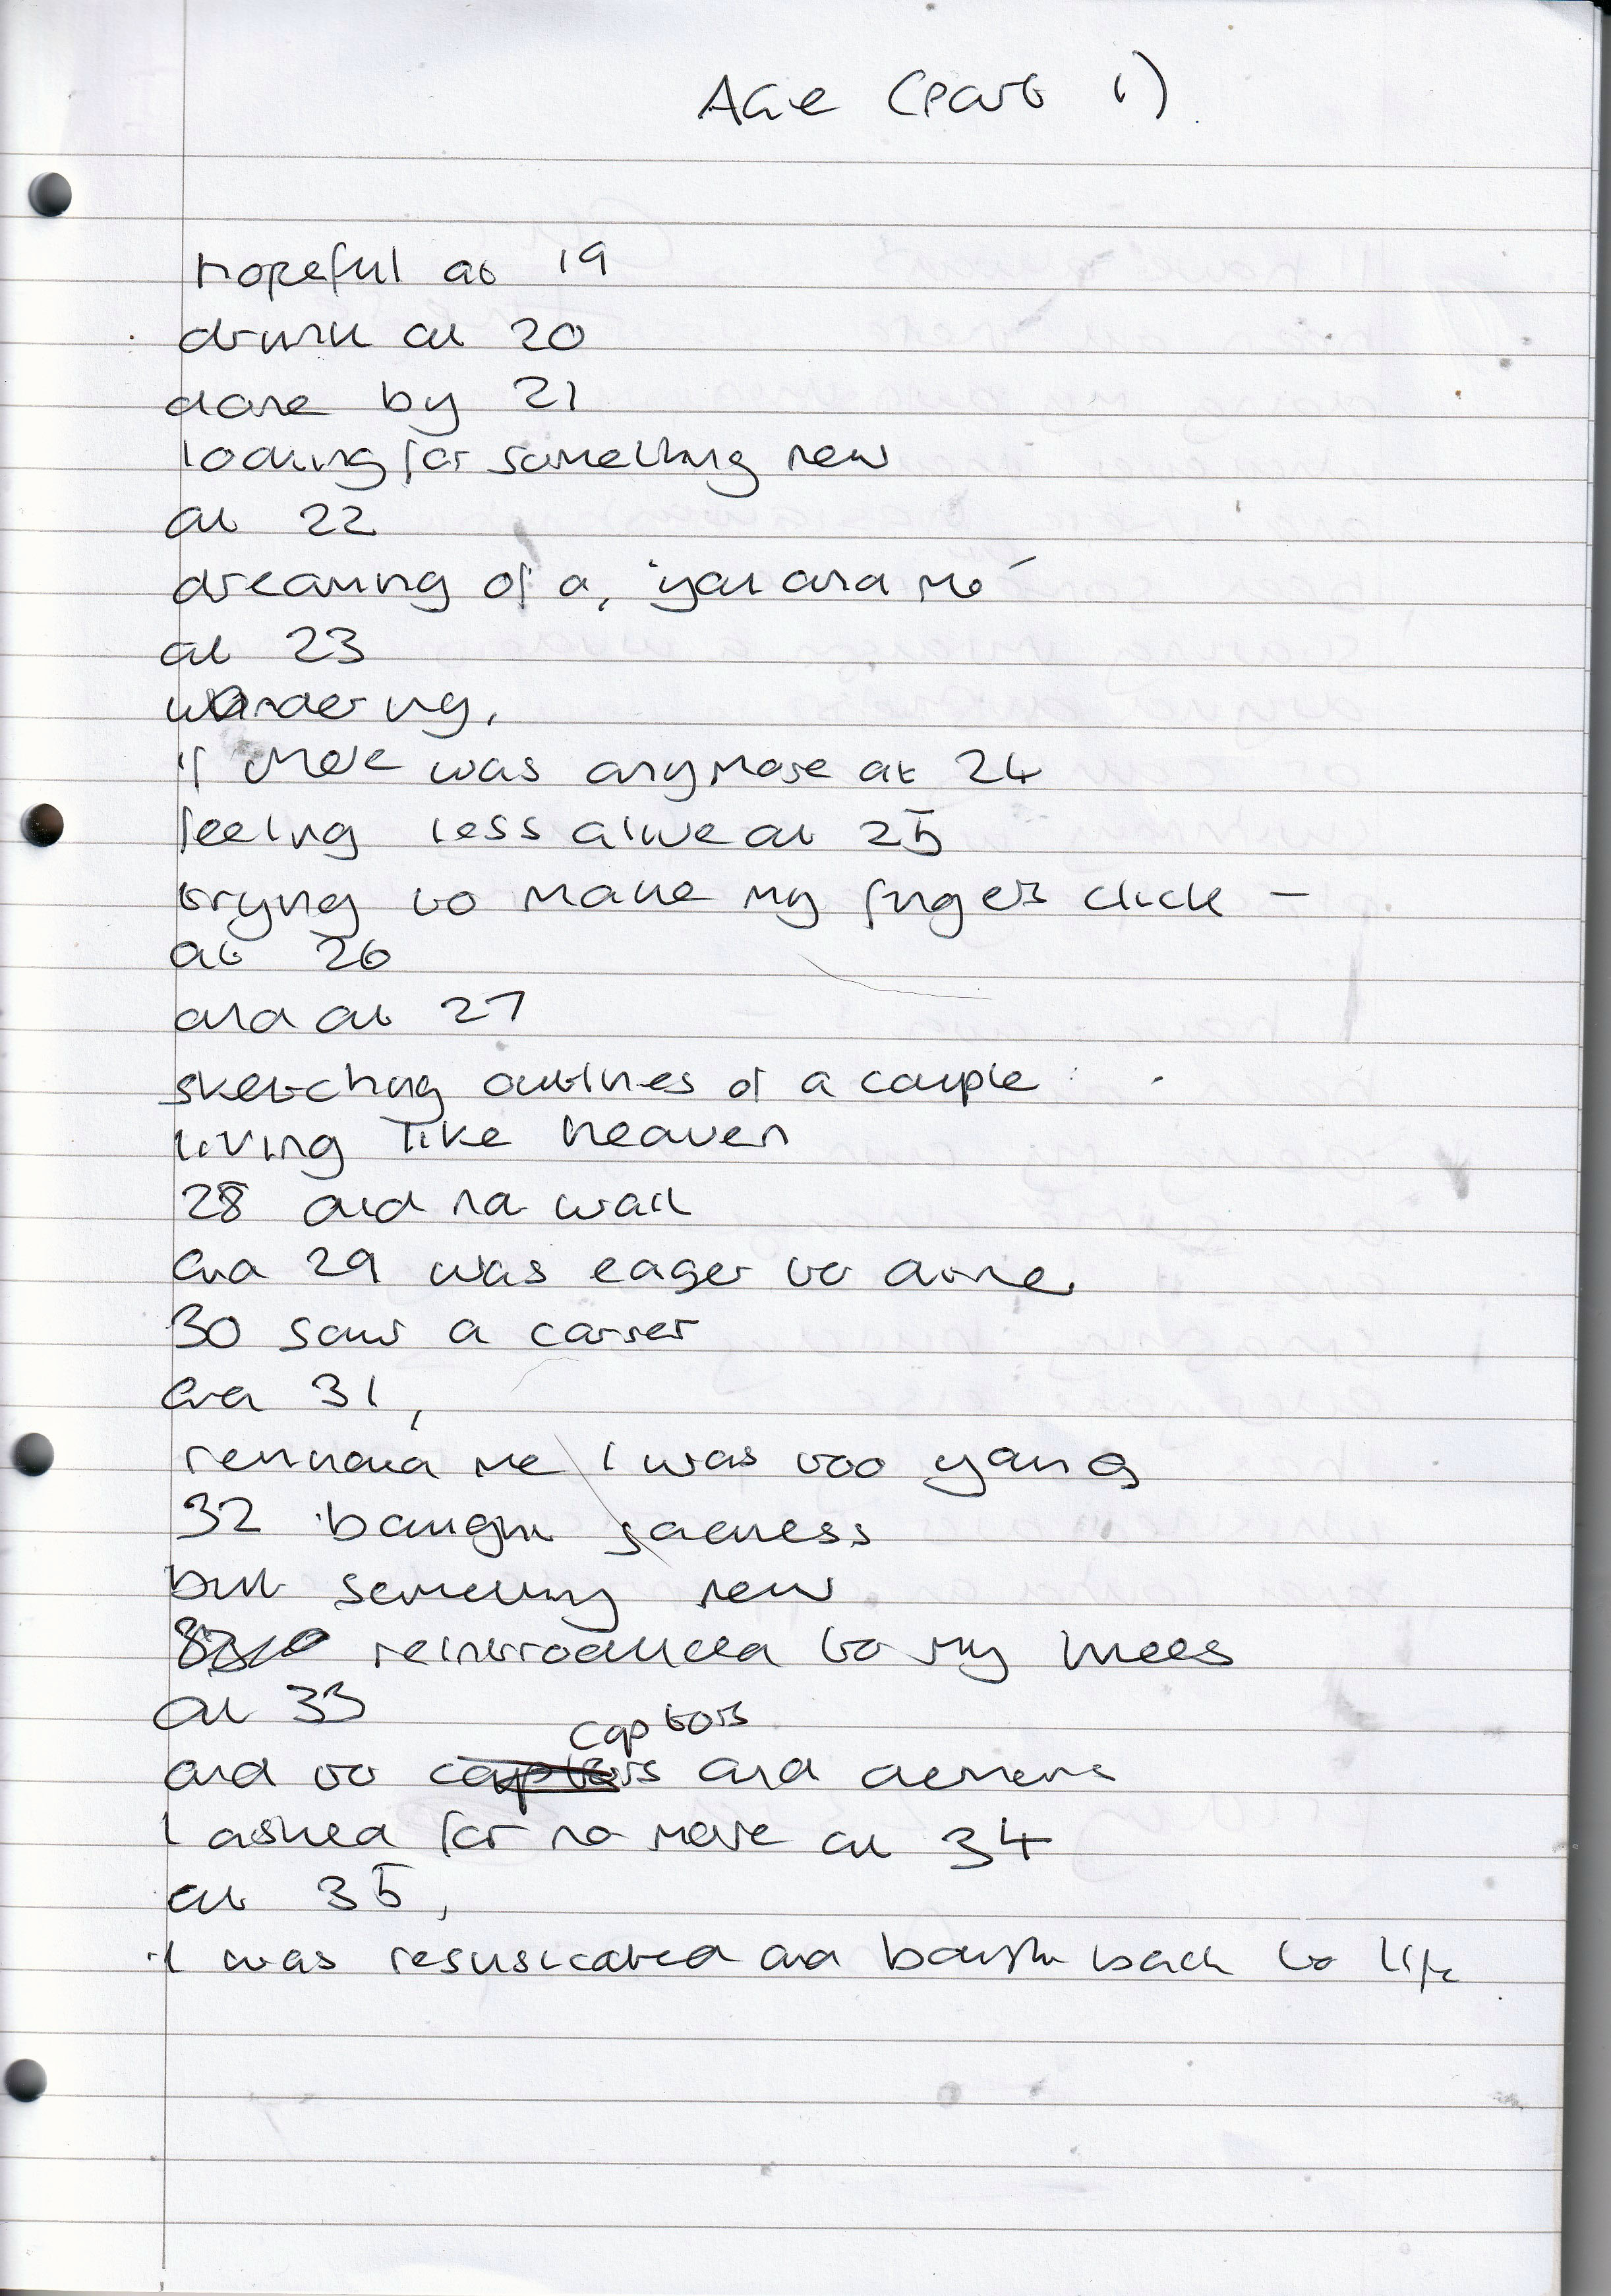 Age (part 1)
hopeful at 19
drunk at 20
done by 21
looking for something new
at 22
dreaming of a, 'you and me'
at 23
wondering,
if there was anymore at 24
feeling less alive at 25
trying to make my fingers click -
at 26
and at 27
sketching outlines of a couple
living like heaven
28 did na wait
and 29 was eager to
30 saw a career
and 31,
remind me I was too young
32 bought sadness
but something new
reintroduced to my knees
at 33
captors
and to captors and
I asked for no more at 34
at 35,
I was resusicated and bought back to life